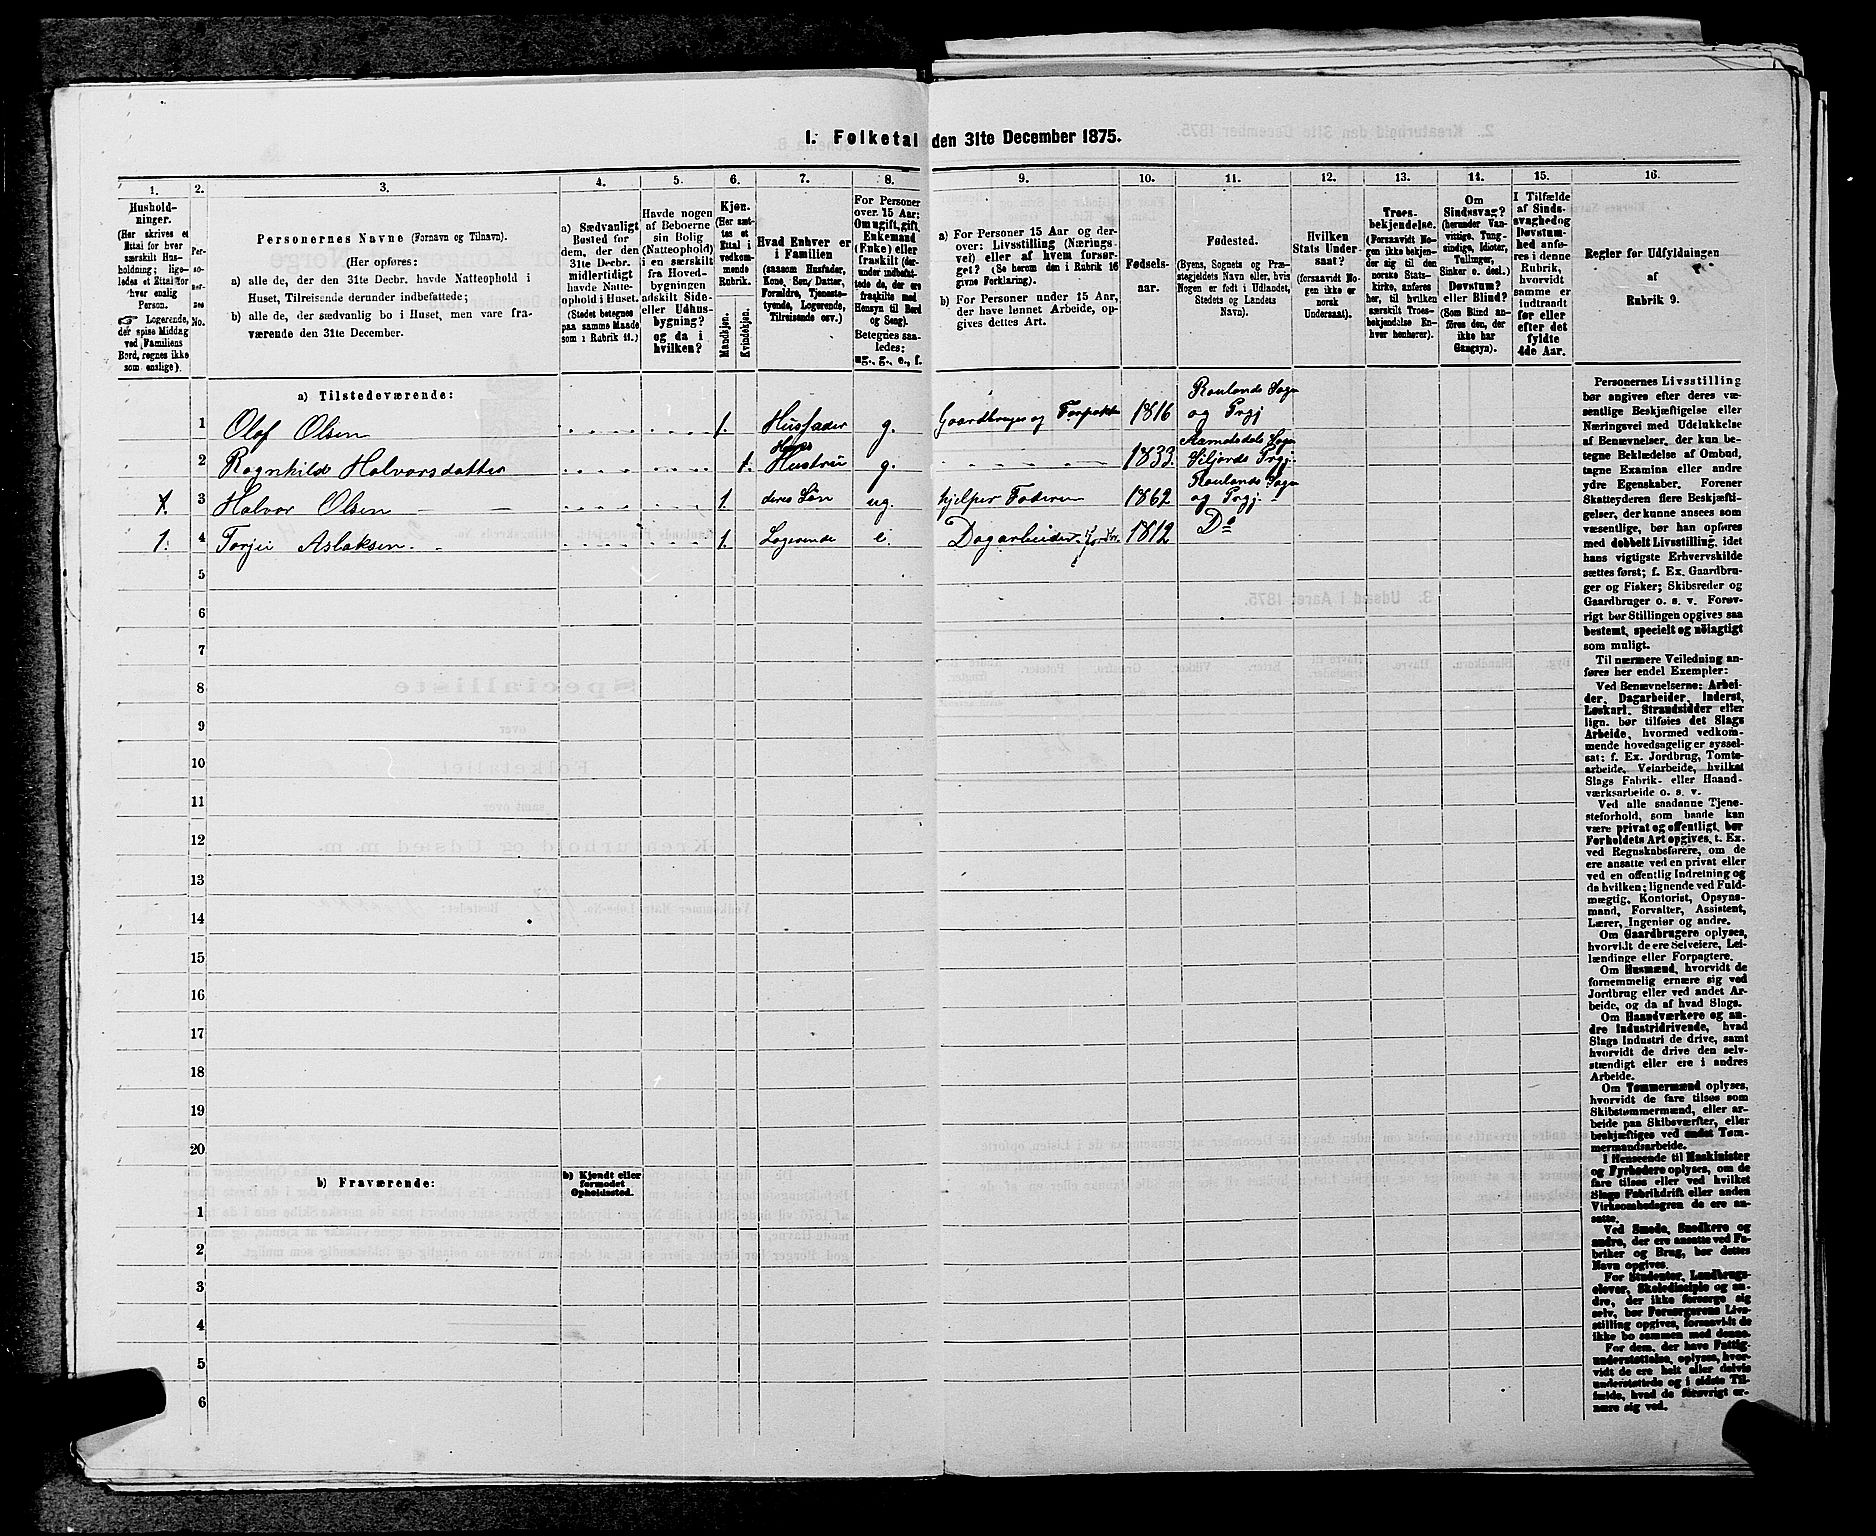 I. Folketal den 31te December 1875.
1. 2. 3. 4. 5. 6. 7. 8. 9. 10. 11. 12. 13. 14. 15. 16.
Hushold-
ninger.
(Her skrives et
Ettal for hver
særskilt Hus-
holdning; lige-
ledes et Ettal for
hver enslig
Person.
☞ Logerende,
der spise Middag
ved Familiens
Bord, regnes ikke
som enslige).
Per-
so-
ner-
nes
No.
Personernes Navne (Fornavn og Tilnavn).
(Her opføres:
a) alle de, der den 31te Decbr. havde Natteophold i
Huset, Tilreisende derunder indbefattede;
b) alle de, der sædvanlig bo i Huset, men vare fra-
værende den 31te December.
a) Sædvanligt
Bosted for
dem, der den
31te Decbr.
midlertidigt
havde Natte-
ophold i Huset.
(Stedet betegnes
paa samme Maade
som i Rubrik 11.)
Havde nogen
af Beboerne
sin Bolig
(Natteophold)
i en særskilt
fra Hoved-
bygningen
adskilt Side-
eller Udhus-
bygning?
og da i
hvilken?
Kjøn.
(Her sæt-
tes et
Ettal i
vedkom-
mende
Rubrik.
Mandkjøn.
Kvindekjøn.
Hvad Enhver er
i Familien
(saasom Husfader,
Kone, Søn, Datter,
Forældre, Tjeneste-
tyende, Logerende,
Tilreisende osv.)
For Personer
over 15 Aar:
Om ugift, gift,
Enkemand
(Enke) eller
fraskilt (der-
under indbefat-
tede de, der ere
fraskilte med
Hensyn til Bord
og Seng).
Betegnes saa-
ledes:
ug., g., e., f.
a) For Personer 15 Aar og der-
over: Livsstilling (Nærings-
vei) eller af hvem forsør-
get? (Se herom den i Rubrik 16
givne Forklaring).
b) For Personer under 15 Aar,
der have lønnet Arbeide, op-
gives dettes Art.
Fødsels-
aar.
Fødested.
(Byens, Sognets og Præ-
stegjeldets Navn eller, hvis
Nogen er født i Udlandet,
Stedets og Landets
Navn).
Hvilken
Stats Under-
saat?
(forsaavidt No-
gen ikke er
norsk
Undersaat).
Troes-
bekjendelse.
(Forsaavidt No-
gen ikke bekjen-
der sig til den
norske Stats-
kirke, anføres
her, til hvilken
særskilt Troes-
bekjendelse En-
hver henhører).
Om
Sindssvag?
(herunder Van-
vittige, Tung-
sindige, Idioter,
Tullinger,
Sinker o. desl.)
Døvstum?
eller Blind?
(Som Blind an-
føres den, der
ikke har
Gangsyn).
I Tilfælde
af Sinds-
svaghed og
Døvstum-
hed anfø-
res i denne
Rubrik,
hvorvidt
samme er
indtraadt
før eller
efter det
fyldte
4de Aar.
Regler for Udfyldningen
af
Rubrik 9.
a) Tilstedeværende:
1 Olaf Olsen 1. Husfader g. Gaardbruger og Forpakter 1816 Raulands Sogn og Prgj
2 Ragnhild Halvorsdatter 1. Hans Hustru g. 1833. Sogn Siljords Prgj.
X. 3 Halvor Olsen 1. deres Søn ug. hjelper Faderen 1862 Raulands Sogn og Prgj.
1. 4 Torjei Aslaksen 1. Logerende e. Dagarbeider 1812 Do
5
6
7
8
9
10
11
12
13
14
15
16
17
18
19
20
b) Fraværende:
b) Kjendt eller
formodet
Opholdssted.
1
2
3
4
5
6
Personernes Livsstilling
bør angives efter deres væ-
sentlige Beskjæftigelse eller
Næringsvei med Udelukkelse
af Benævnelser, der kun be-
tegne Beklædelse af Ombud,
tagne Examina eller andre
ydre Egenskaber. Forener
Skatteyderen flere Beskjæfti-
gelser, der kunne ansees som
væsentlige, bør han opføres
med dobbelt Livsstilling, idet
hans vigtigste Erhvervskilde
sættes først; f. Ex. Gaardbru-
ger og Fisker; Skibsreder og
Gaardbruger o. s. v. Forøv-
rigt bør Stillingen opgives saa
bestemt, specielt og nøiagtigt
som muligt.
Til nærmere Veiledning an-
føres her endel Exempler:
Ved Benævnelserne: Arbei-
der, Dagarbeider, Inderst,
Løskarl, Strandsidder eller
lign. bør tilføies det Slags
Arbeide, hvormed vedkom-
mende hovedsagelig er syssel-
sat; f. Ex. Jordbrug, Tomte-
arbeide, Veiarbeide, hvilket
Slags Fabrik- eller Haand-
værksarbeide o. s. v.
Ved alle saadanne Tjene-
steforhold, som baade kan
være privat og offentligt, bør
Forholdets Art opgives, t. Ex.
ved Regnskabsførere, om de
ere ansatte ved en privat eller
ved en offentlig Indretning og
da hvilken; lignende ved Fuld-
mægtig, Kontorist, Opsyns-
mand, Forvalter, Assistent,
Lærer, Ingeniør og andre.
Om Gaardbrugere oplyses,
hvorvidt de ere Selveiere, Lei-
lændinge eller Forpagtere.
Om Husmænd, hvorvidt de
fornemmelig ernære sig ved
Jordbrug eller ved andet Ar-
beide, og da af hvad Slags.
Om Haandværkere og an-
dre Industridrivende, hvad
Slags Industri de drive, samt
hvorvidt de drive den selv-
stændigt eller ere i andres
Arbeide.
Om Tømmermænd oplyses,
hvorvidt de fare tilsøs som
Skibstømmermænd, eller ar-
beide paa Skibsværfter, eller
beskjæftiges ved andet Tøm-
mermandsarbeide.
I Henseende til Maskinister
og Fyrbødere oplyses, om de
fare tilsøs eller ved hvilket
Slags Fabrikdrift eller anden
Virksomhedsgren de ere an-
satte.
Ved Smede, Snedkere og
andre, der ere ansatte ved Fa-
briker og Brug, bør dettes
Navn opgives.
For Studenter, Landbrugs-
elever, Skoledisciple og an-
dre, der ikke forsørge sig
selv, bør Forsørgerens Livs-
stilling opgives, forsaavidt de
ikke bo sammen med denne.
For dem, der have Fattig-
understøttelse, oplyses, hvor-
vidt de ere helt eller delvis
understøttede og i sidste Til-
fælde, hvad de forøvrigt er-
nære sig ved.